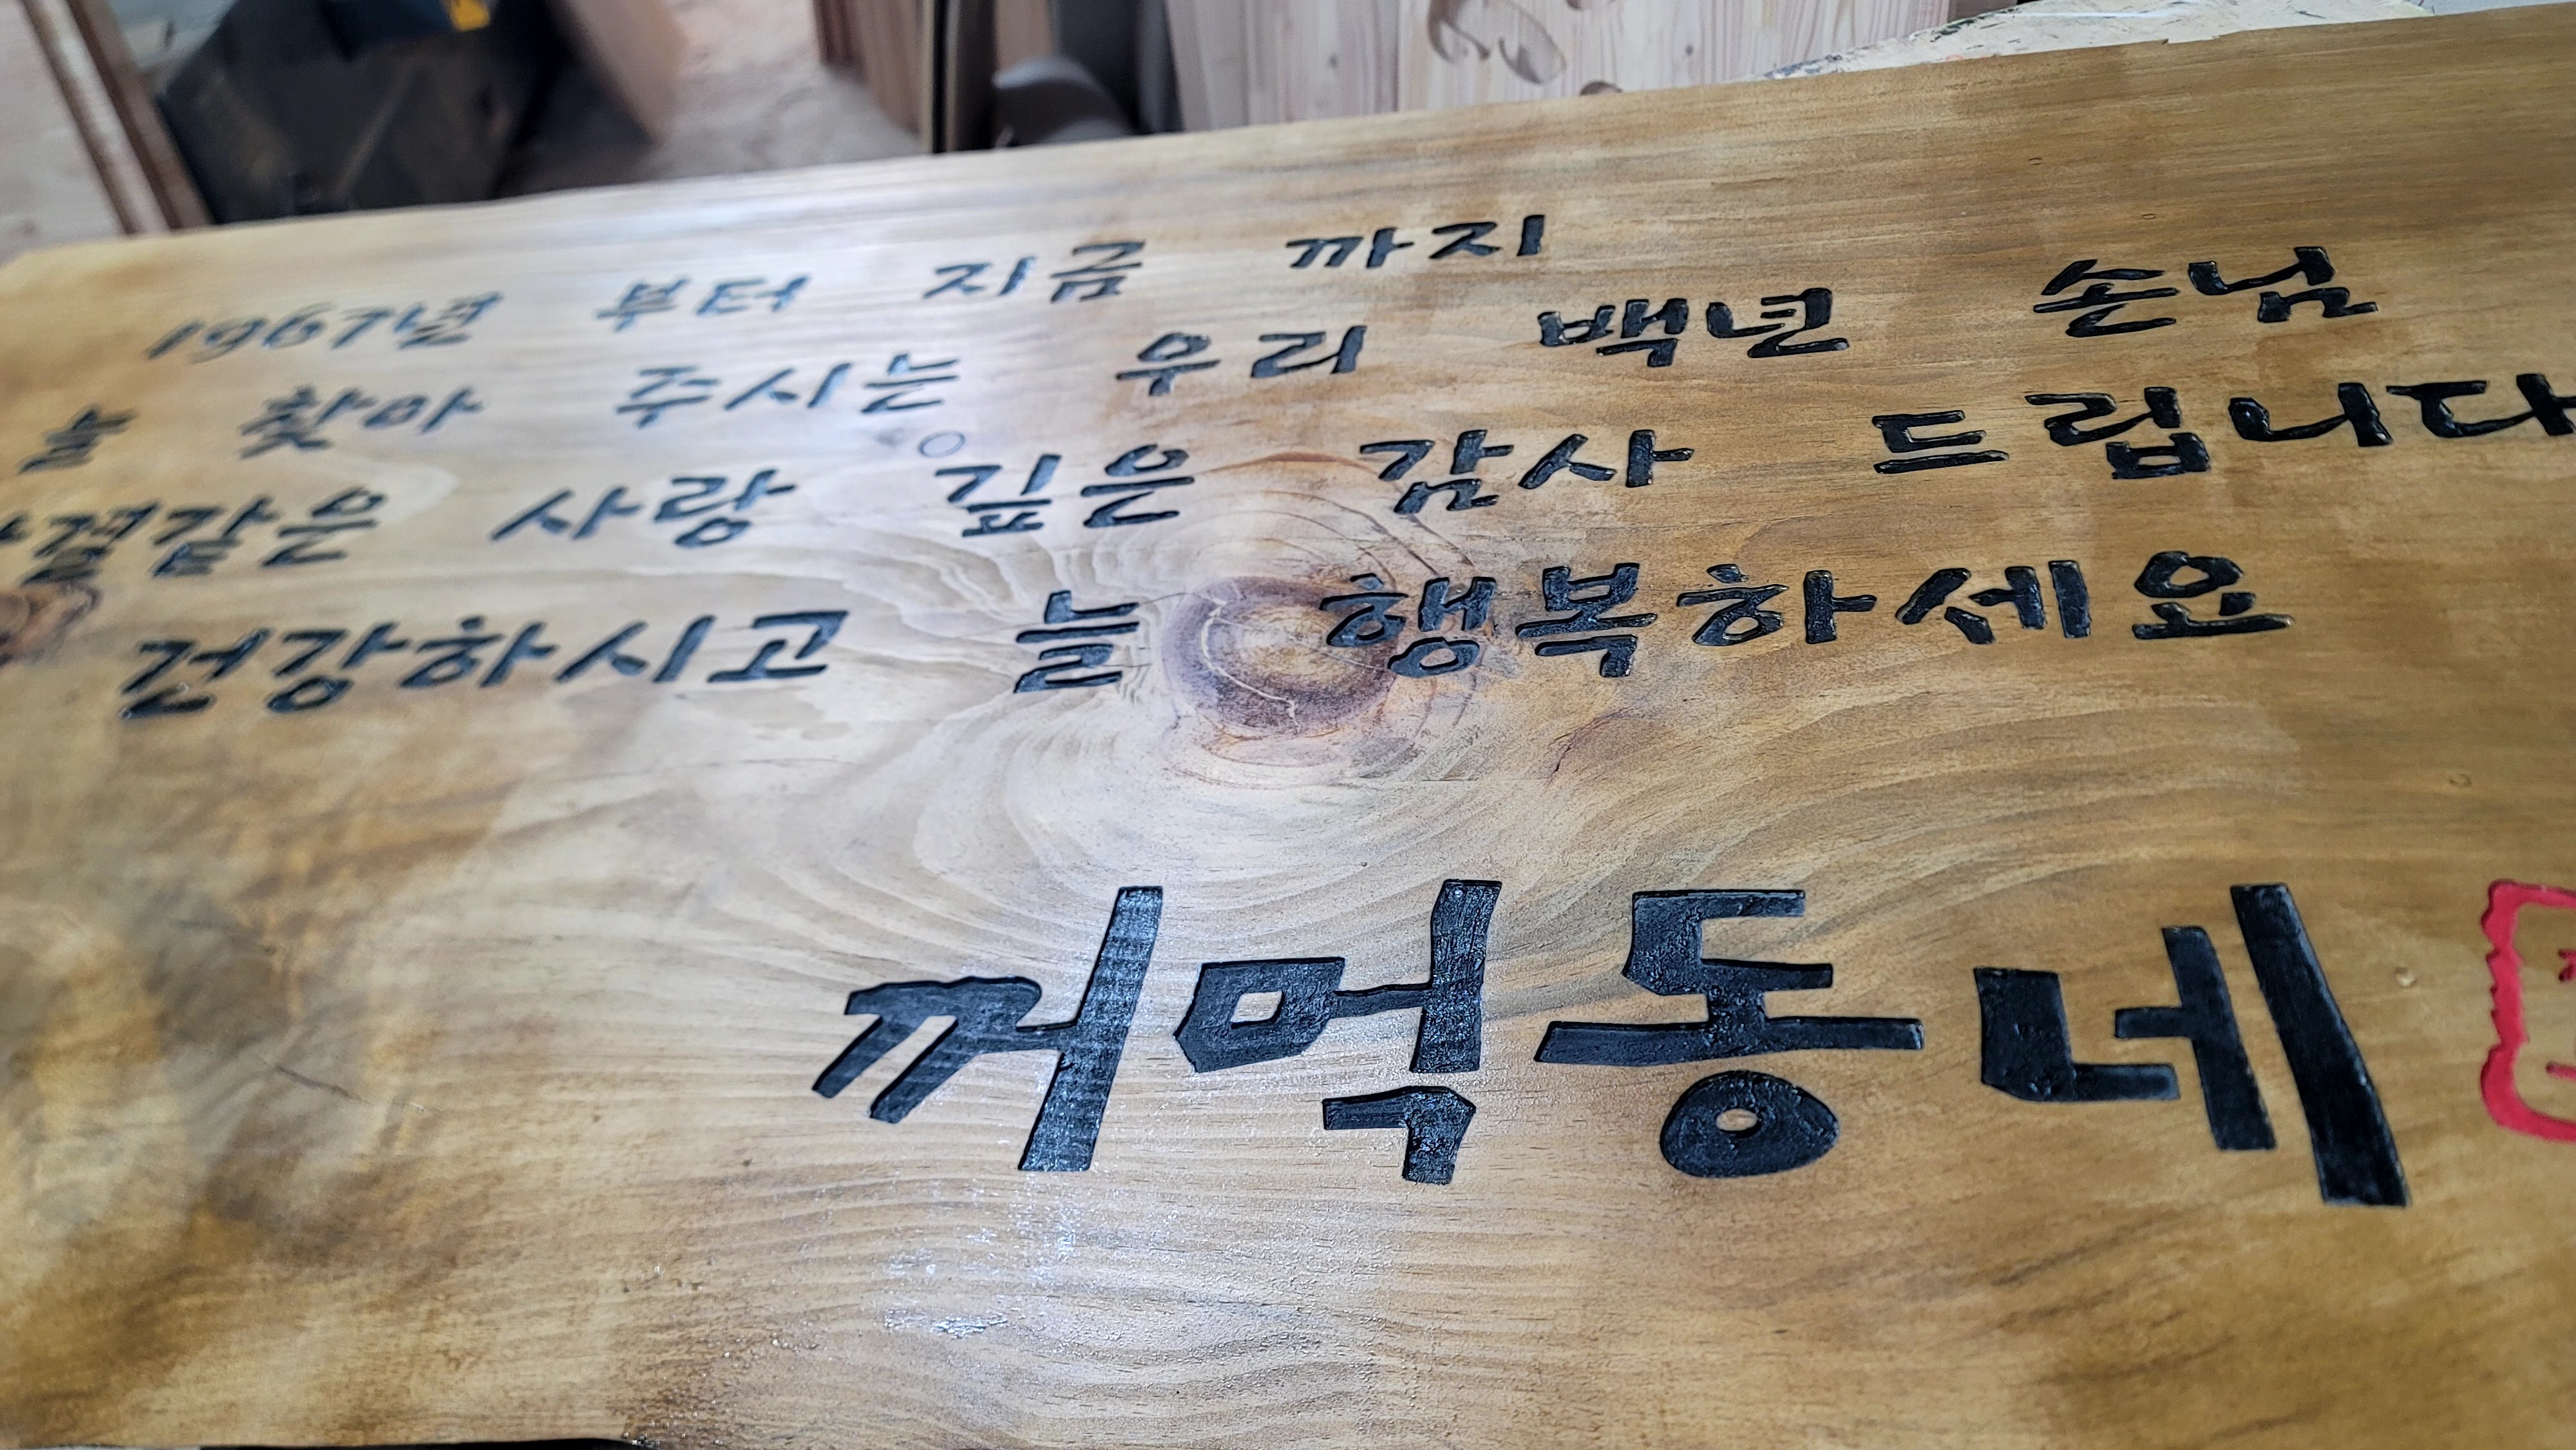 1967년 부터 지금 까지
늘 찾아 주시는 우리 백년 손님
같은 사랑 깊은 감사 드립니다
건강하시고 늘 행복하세요
꺼먹동네